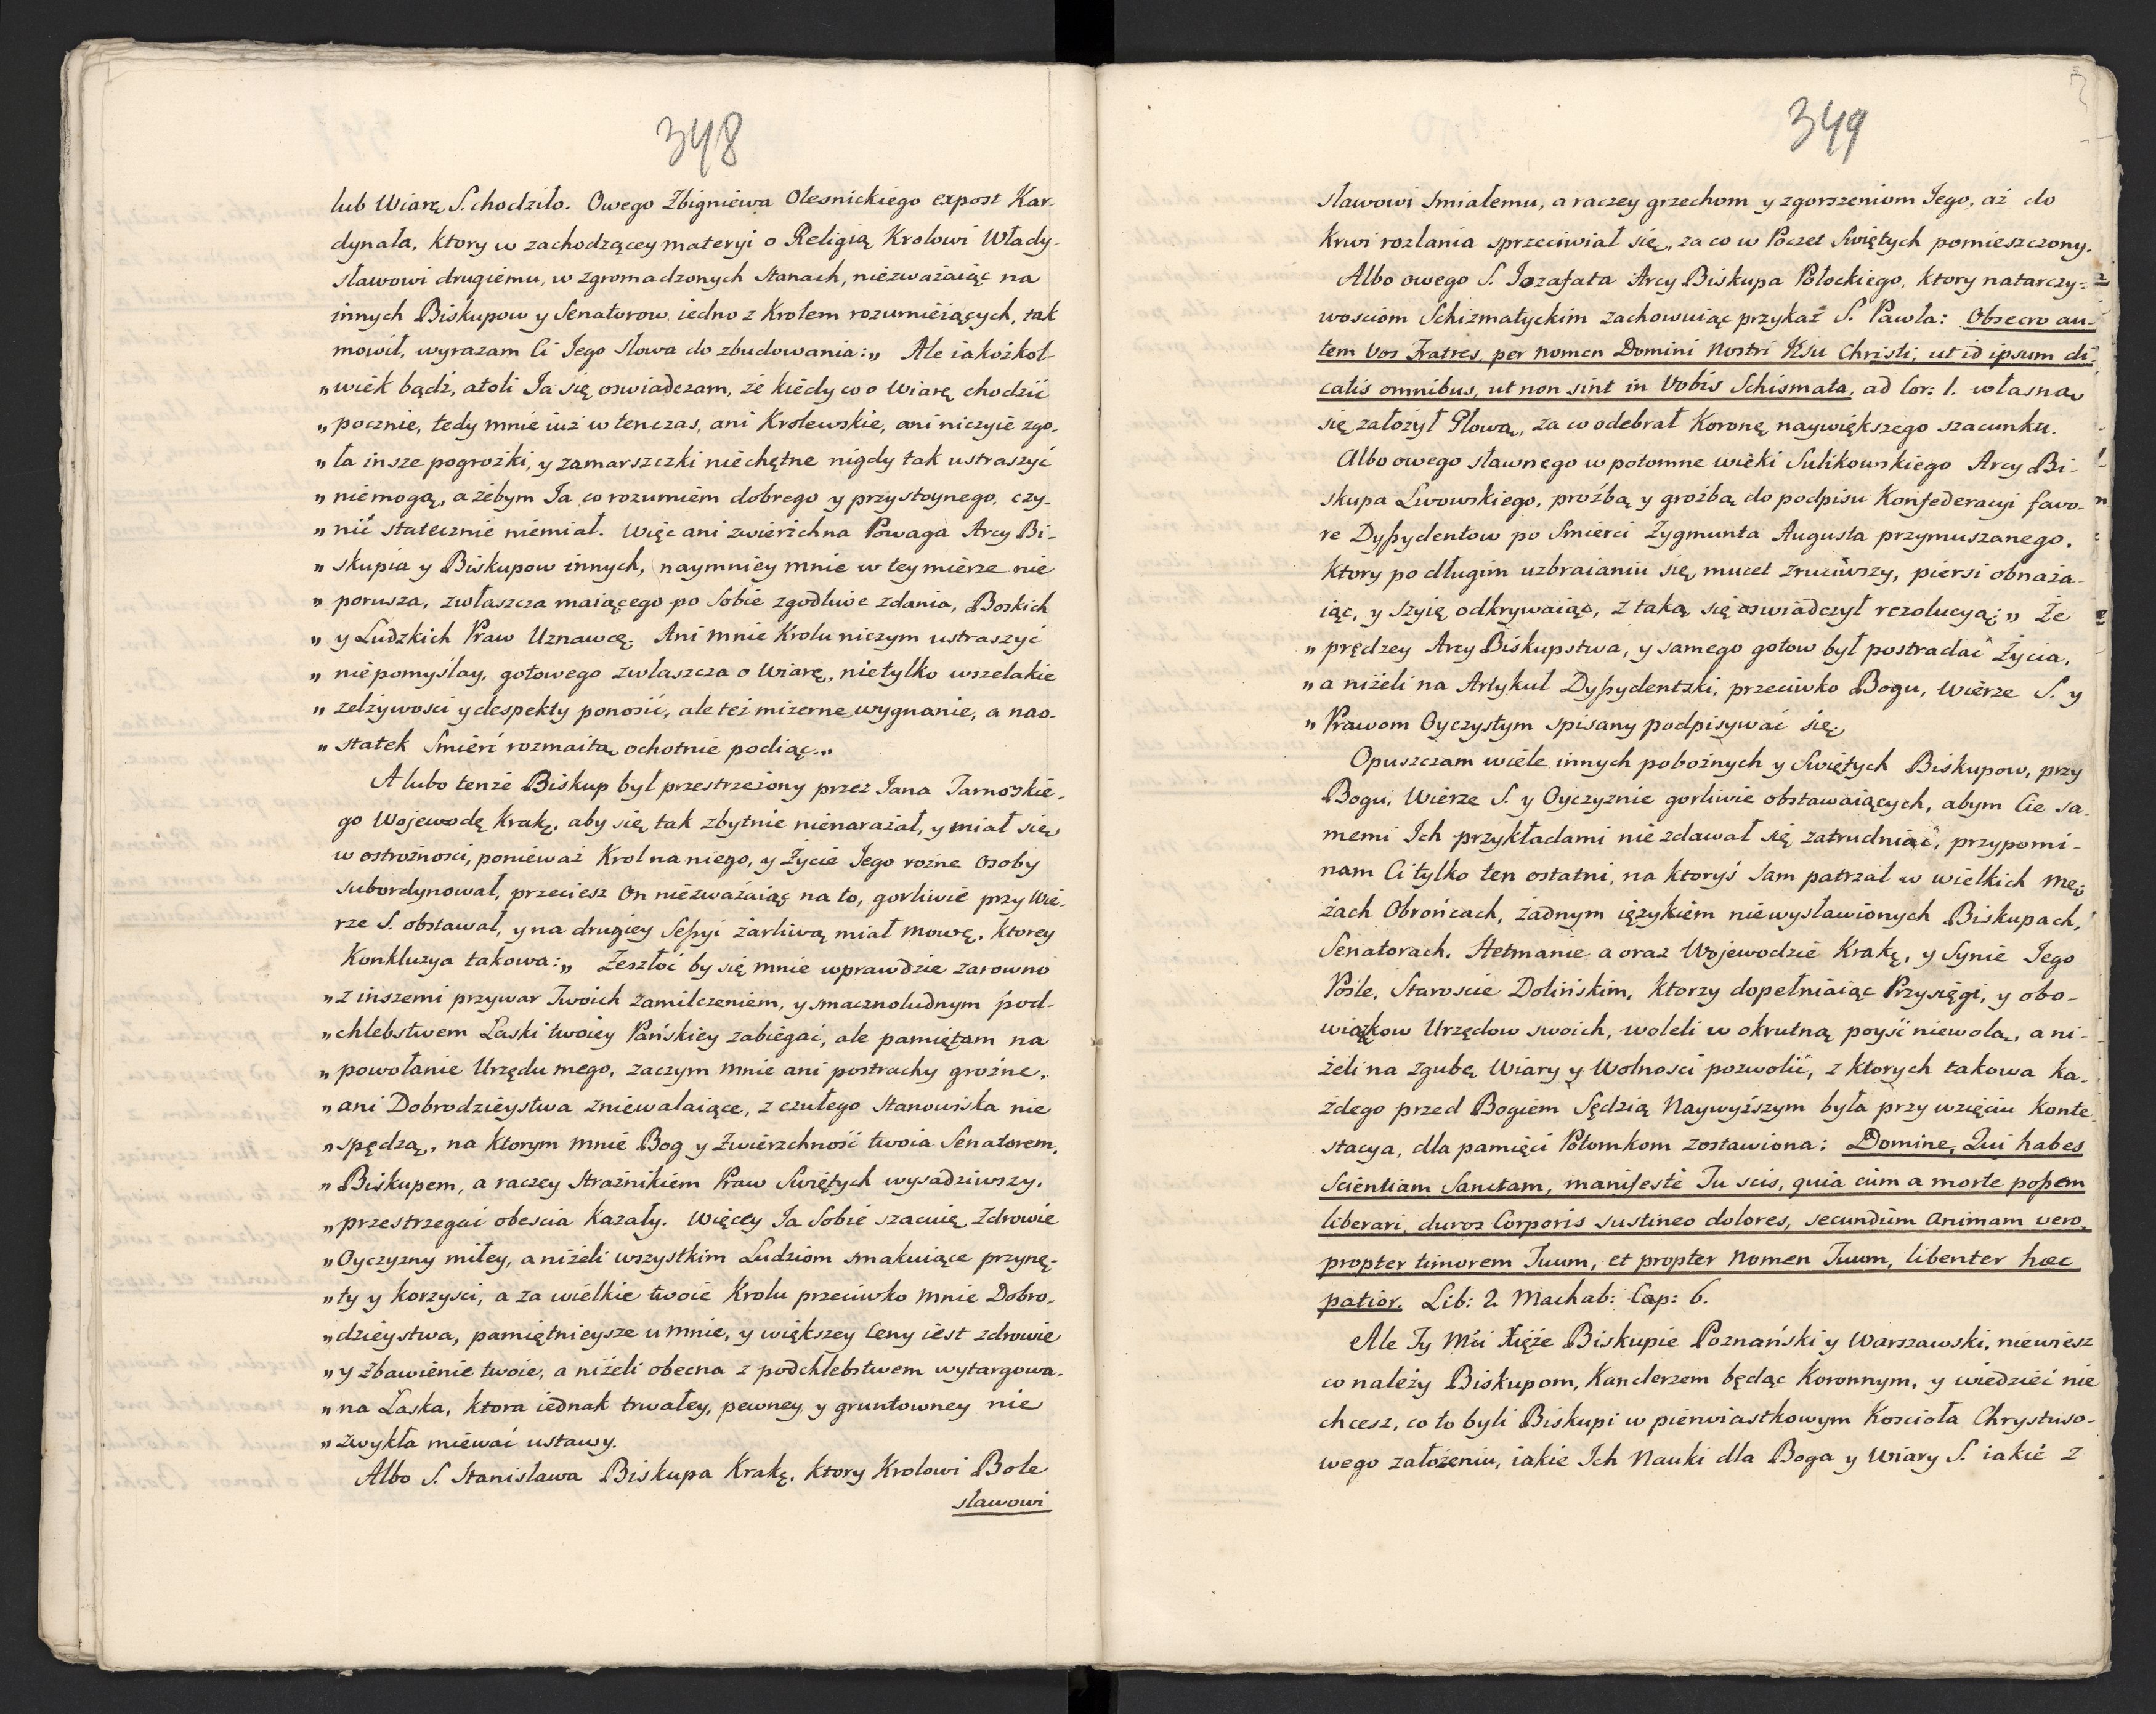 348
lub Wiarę S. chodziło. Owego Zbigniewa Olesnickiego expost Kar-
dynała, ktory w zachodzącey materyi o Religią Krolowi Włady-
sławowi drugiemu, w zgromadzonych Stanach, niezważaiąc na
innych Biskupow y Senatorow iedno z Krolem rozumieiących, tak
mowił, wyrazam Ci Jego słowa do zbudowania: „ Ale iakożkol-
„ wiek bądź, atoli Ja się oswiadczam, że kiedy co o Wiarę chodzić
„ pocznie, tedy mnie iuż w tenczas, ani Krolewskie, ani niczyie zgo-
„ ła insze pogrożki, y zamarszczki niechętne nigdy tak ustraszyć
„ niemogą, a żebym Ja co rozumiem dobrego y przystoynego, czy-
„ nić statecznie niemiał. Więc ani zwierzchna Powaga Arcy Bi-
„ skupia y Biskupow innych, naymniey mnie w tey mierze nie
„ porusza, zwłaszcza maiącego po Sobie zgodliwe zdania, Boskich
„ y Ludzkich Praw Uznawcę. Ani mnie Krolu niczym ustraszyć
„ niepomyslay, gotowego zwłaszcza o Wiarę, nietylko wszelakie
„ zelżywosci y despekty ponosić, ale też mizerne wygnanie, a nao-
„ statek Smierć rozmaitą ochotnie podiąc.„
A lubo tenże Biskup był przestrzeżony przez Jana Tarnoskie-
go Wojewodę Krakę. aby się tak zbytnie nienarażał, y miał się
w ostrożnosci, ponieważ Krol na niego, y Życie Jego rożne Osoby
subordynował, przeciesz On niezważaiąc na to, gorliwie przy Wie-
rze S. obstawał, y na drugiey Seſsyi żarliwą miał Mowę, Ktorey
Konkluzya takowa: „ Zeszłoć by się mnie wprawdzie zarowno
„ z inszemi przywar Twoich zamilczeniem, y smacznoludnym pod-
„ chlebstwem Łaski twoiey Pańskiey zabiegać, ale pamiętam na
„ powołanie Urzędu mego, zaczym mnie ani postrachy groźne,
„ ani Dobrodzieystwa zniewalaiące, z czułego Stanowiska nie
„ spędzą, na ktorym mnie Bog y Zwierzchność twoia Senatorem,
„ Biskupem, a raczey Strażnikiem Praw Swiętych wysadziwszy,
„ przestrzegać obescia kazały. Więcey Ja Sobie szacuię Zdrowie
„ Oyczyzny miłey, a niżeli wszystkim Ludziom smakuiące przynę-
„ ty y korzysci, a za wielkie twoie Krolu przeciwko mnie Dobro-
„ dzieystwa, pamiętnieysze u mnie, y większey Ceny iest zdrowie
„ y Zbawienie twoie, a niżeli obecna z podchlebstwem wytargowa-
„ na Łaska, ktora iednak trwałey, pewney y gruntowney nie
„ zwykła miewać ustawy.
Albo S. Stanisława Biskupa Krakę. ktory Krolowi Bole
sławowi
349
sławowi Smiałemu, a raczey grzechom y zgorszeniom Jego, aż do
Krwi rozlania sprzeciwiał się, za co w Poczet Swiętych pomieszczony.
Albo owego S. Jozafata Arcy Biskupa Połockiego, ktory natarczy=
wosciom Schizmatyckim zachowuiąc przykaz S. Pawła: Obsecro au-
tem Vos Fratres, per Nomen Domini Nostri JEsu Christi, ut id ipsum di-
catis omnibus, ut non sint in Vobis Schismata, ad Cor: 1. własną
się założył Głową, za co odebrał Koronę naywiększego szacunku.
Albo owego sławnego w potomne wieki Sulikowskiego Arcy Bi-
skupa Lwowskiego, proźbą y groźbą do podpisu Konfederacyi favo-
re Dyſsydentow po Smierci Zygmunta Augusta przymuszanego,
Ktory po długim uzbraianiu się, mucet zruciwszy, piersi obnaża-
iąc, y szyię odkrywaiąc, z taką się oswiadczył rezolucyą; „ Że
„ prędzey Arcy Biskupstwa, y samego gotow był postradać Życia,
„ a niżeli na Artykuł Dyſsydentski, przeciwko Bogu, Wierze S. y
„ Prawom Oyczystym spisany podpisywać się
Opuszczam wiele innych pobożnych y Swiętych Biskupow, przy
Bogu, Wierze S. y Oyczyznie gorliwie obstawaiących, abym Cie sa-
memi Ich przykładami nie zdawał się zatrudniać, przypomi-
nam Ci tylko ten ostatni, na ktoryś Sam patrzał w wielkich Mę-
żach Obrońcach, żadnym ięzykiem niewysławionych Biskupach,
Senatorach, Hetmanie a oraz Wojewodzie Krakę. y Synie Jego
Pośle, Staroscie Dolińskim, ktorzy dopełniaiąc Przysięgi, y obo-
wiązkow Urzędow swoich, woleli w okrutną poyść niewolą, a ni-
żeli na zgubę Wiary y Wolnosci pozwolić, z ktorych takowa ka-
żdego przed Bogiem Sędzią Naywyższym była przy wzięciu Konte-
stacya, dla pamięci Potomkom zostawiona: Domine, Qui habes
Scientiam Sanctam, manifestè Tu scis, quia cùm a morte poſsem
liberari, duros Corporis sustineo dolores, secundùm Animam vero,
propter timorem Tuum, et propter Nomen Tuum, libenter hæc
patior. Lib: 2. Machab: Cap: 6.
Ale Ty Mći Xięże Biskupie Poznański y Warszawski, niewiesz
co należy Biskupom, Kanclerzem będąc Koronnym, y wiedzieć nie
chcesz, co to byli Biskupi w pierwiastkowym Koscioła Chrystuso-
wego założeniu, iakie Ich Nauki dla Boga y Wiary S. iakie z